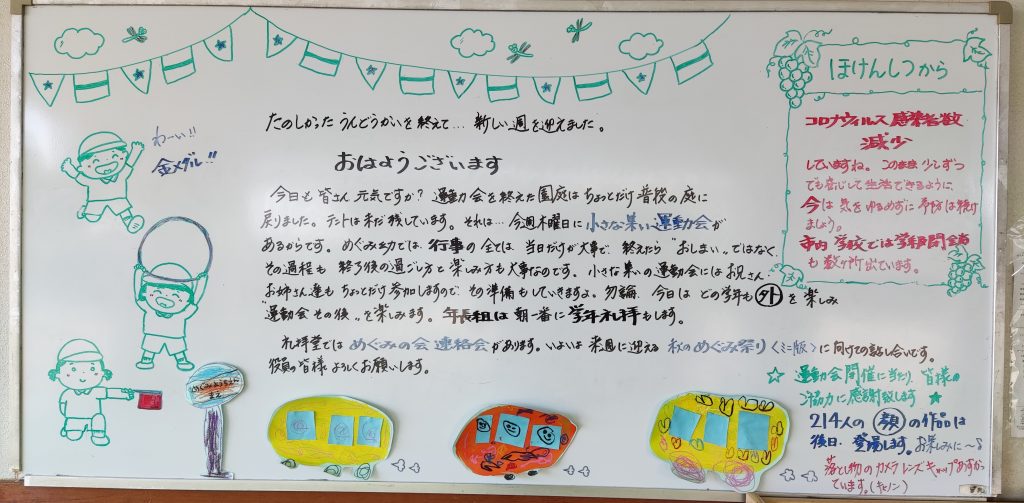 わーい!!
金メダル!!
たのしかった うんどうかいを終えて… 新しい週を迎えました。
おはようございます
今日も皆さん元気ですか? 運動会を終えた園庭はちょっとだけ普段の庭に
戻りました。テントは未だ残しています。それは…今週木曜日に小さな集い運動会が
あるからです。めぐみ
では、行事の全ては、当日だけが大事で、終えたら"おしまい"ではなく、
その過程も 終了後の過ごし方と楽しみ方も大事なのです。小さな集いの運動会にはお兄さん
お姉さん達もちょっとだけ参加しますので、その準備もしていきますよ。勿論、今日は どの学年も 外 を楽しみ
"運動会その後"を楽しみます。年長組は朝一番に学年礼拝もします。
礼拝堂では めぐみの会 連絡会があります。いよいよ 来週に迎える 秋のめぐみ祭り〈ミニ版〉に向けての話し合いです。
役員の皆様よろしくお願いします。
ほけんしつから
コロナウィルス感染者数
減少
していますね。このまま少しずつ
でも安心して生活できるように、
今は気をゆるめずに予防は続け
ましょう。
市内 学校では学級閉鎖
も数ヶ所出ています。
☆ 運動会開催に当たり、皆様の
ご協力に感謝致します ☆
214人の 顔 の作品は
後日、登場します。お楽しみに〜♪
落とし物のカメラレンズキャップあずかっ
ています。(キヤノン)